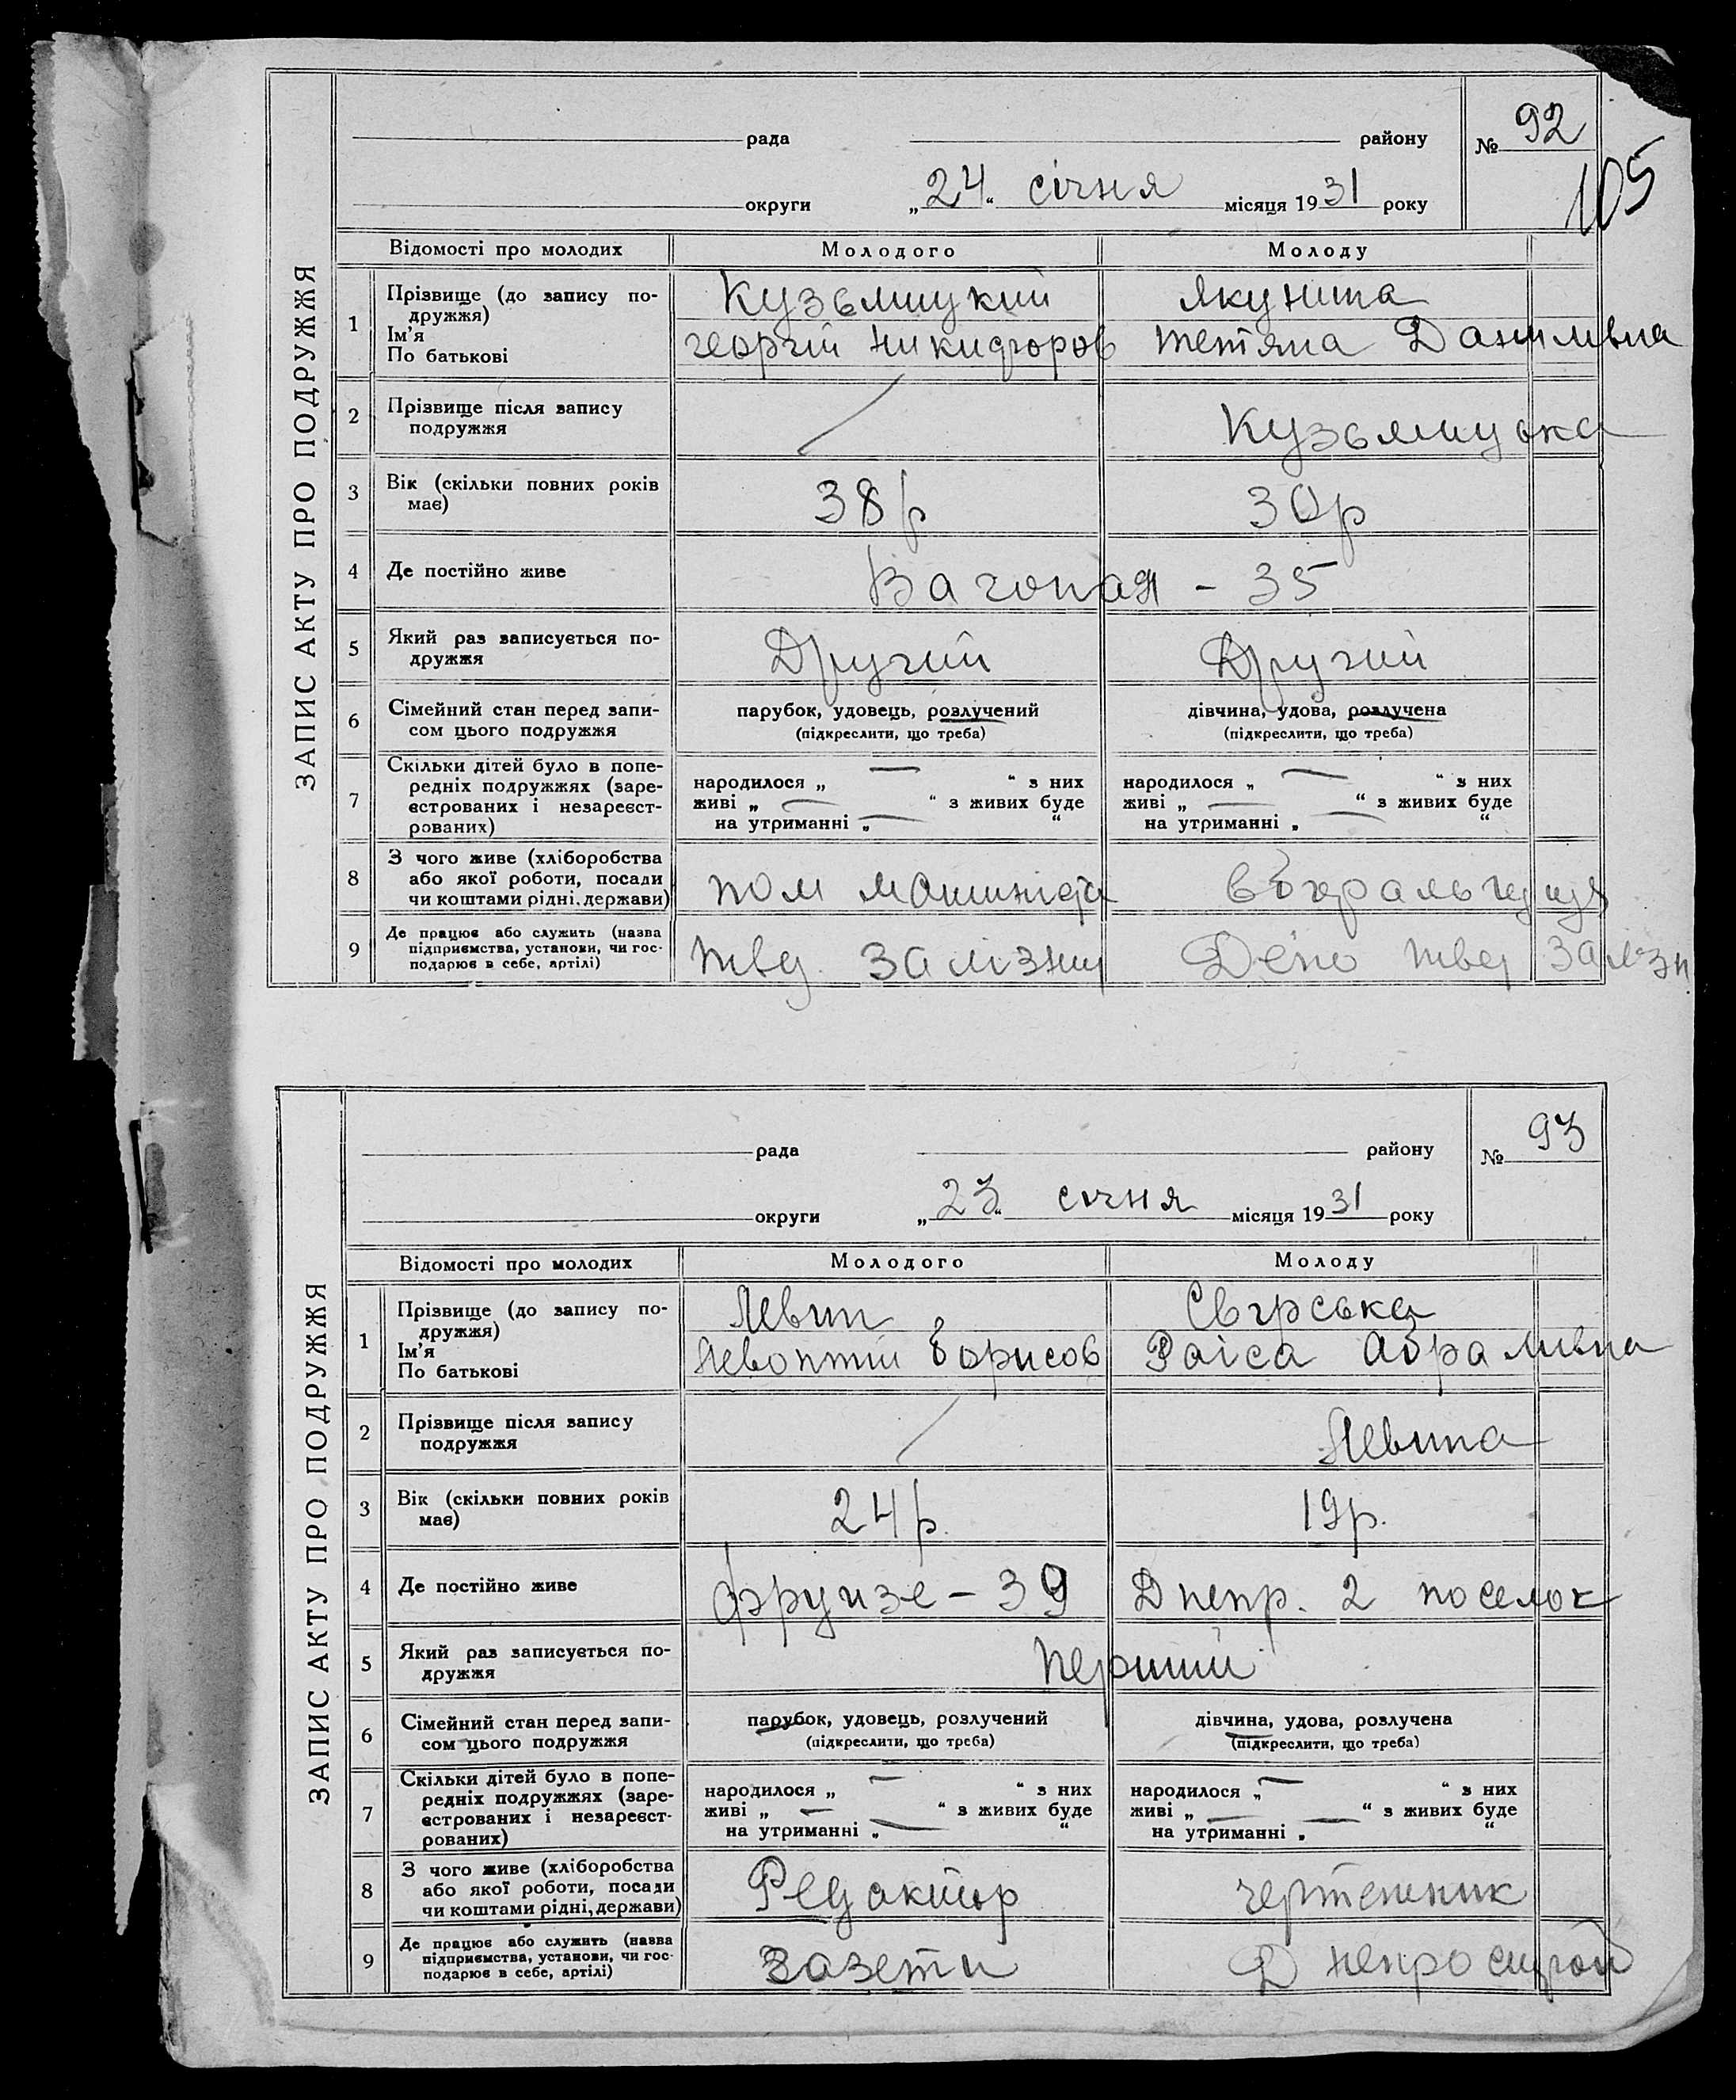 ЗАПИС АКТУ ПРО ПОДРУЖЖЯ
рада району № 92
105
округи „24“ січня місяця 1931 року
Відомості про молодих Молодого Молоду
1 Прізвище (до запису по-
дружжя)
Ім'я
По батькові
Кузьмицкий Якунина
Георгій Никифоров Тетяна Данилівна
2 Прізвище після запису
подружжя
Кузьмицька
3 Вік (скільки повних років
має)
38 р 30 р
4 Де постійно живе Вагоная - 35
5 Який раз записується по-
дружжя
Другий Другий
6 Сімейний стан перед запи-
сом цього подружжя
парубок, удовець, розлучений дівчина, удова, розлучена
(підкреслити, що треба) (підкреслити, що треба)
7 Скільки дітей було в попе-
редніх подружжях (заре-
єстрованих і незареєст-
рованих)
народилося „ — “ з них народилося „ — “ з них
живі „ — “ з живих буде живі „ — “ з живих буде
на утриманні „ — “ на утриманні „ — “
8 З чого живе (хліборобства
або якої роботи, посади
чи коштами рідні, держави)
пом машиніста
9 Де працює або служить (назва
підприємства, установи, чи гос-
подарює в себе, артілі)
твер залізниц Депо твер залізн
ЗАПИС АКТУ ПРО ПОДРУЖЖЯ
рада району № 93
округи „23“ січня місяця 1931 року
Відомості про молодих Молодого Молоду
1 Прізвище (до запису по-
дружжя)
Ім'я
По батькові
Левин Свірська
Левонтій Борисов Раіса Абрамивна
2 Прізвище після запису
подружжя
Левина
3 Вік (скільки повних років
має)
24 р. 19 р.
4 Де постійно живе Фрунзе - 39 Днепр. 2 поселок
5 Який раз записується по-
дружжя
перший
6 Сімейний стан перед запи-
сом цього подружжя
парубок, удовець, розлучений дівчина, удова, розлучена
(підкреслити, що треба) (підкреслити, що треба)
7 Скільки дітей було в попе-
редніх подружжях (заре-
єстрованих і незареєст-
рованих)
народилося „ — “ з них народилося „ — “ з них
живі „ — “ з живих буде живі „ — “ з живих буде
на утриманні „ — “ на утриманні „ — “
8 З чого живе (хліборобства
або якої роботи, посади
чи коштами рідні, держави)
Редактор чертежник
9 Де працює або служить (назва
підприємства, установи, чи гос-
подарює в себе, артілі)
газети Днепрострой